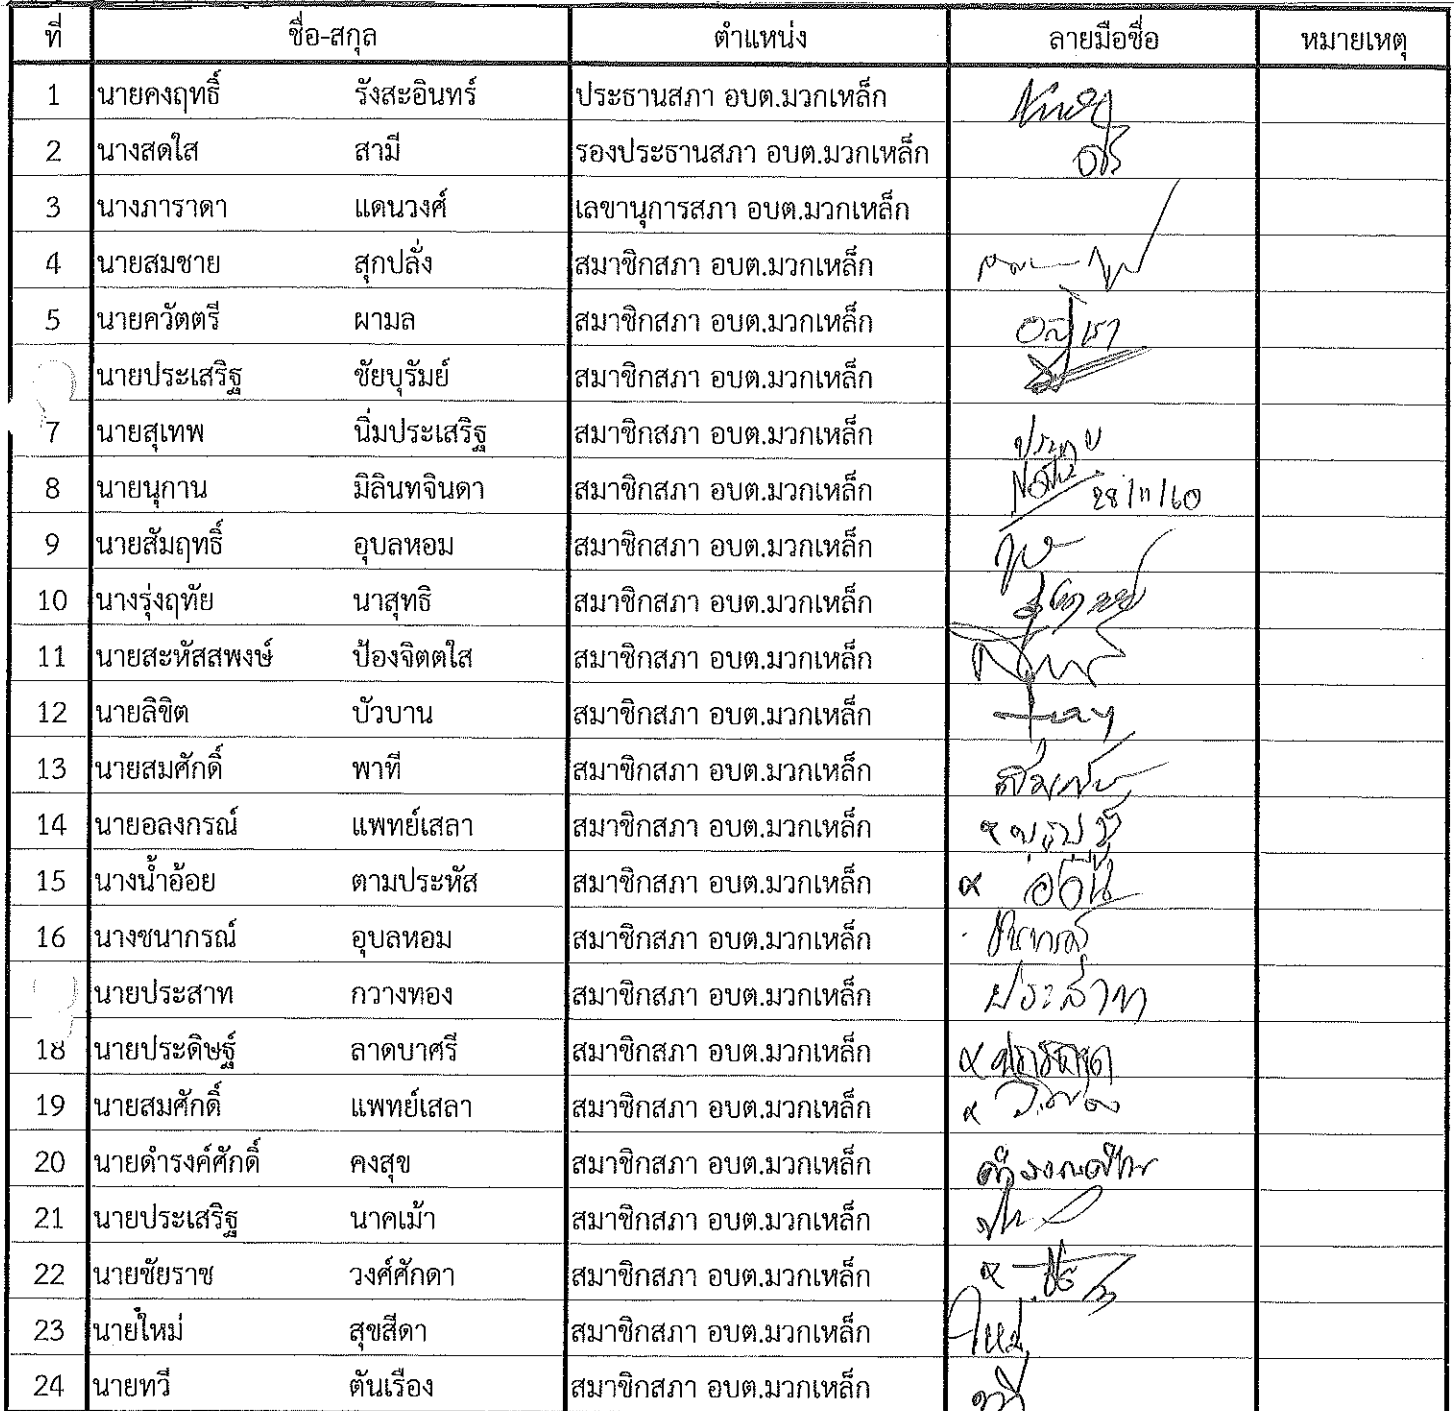 ที่ ชื่อ-สกุล ตำแหน่ง ลายมือชื่อ หมายเหตุ
1 นายคงฤทธิ์ รังสะอินทร์ ประธานสภา อบต.มวกเหล็ก
2 นางสดใส สามี รองประธานสภา อบต.มวกเหล็ก
3 นางภาราดา แดนวงศ์ เลขานุการสภา อบต.มวกเหล็ก
4 นายสมชาย สุกปลั่ง สมาชิกสภา อบต.มวกเหล็ก
5 นายควัตตรี ผามล สมาชิกสภา อบต.มวกเหล็ก
นายประเสริฐ ชัยบุรัมย์ สมาชิกสภา อบต.มวกเหล็ก
7 นายสุเทพ นิ่มประเสริฐ สมาชิกสภา อบต.มวกเหล็ก
8 นายนุกาน มิลินทจินดา สมาชิกสภา อบต.มวกเหล็ก 28/11/60
9 นายสัมฤทธิ์ อุบลหอม สมาชิกสภา อบต.มวกเหล็ก
10 นางรุ่งฤทัย นาสุทธิ สมาชิกสภา อบต.มวกเหล็ก
11 นายสะหัสสพงษ์ ป้องจิตตใส สมาชิกสภา อบต.มวกเหล็ก
12 นายลิขิต บัวบาน สมาชิกสภา อบต.มวกเหล็ก
13 นายสมศักดิ์ พาที สมาชิกสภา อบต.มวกเหล็ก
14 นายอลงกรณ์ แพทย์เสลา สมาชิกสภา อบต.มวกเหล็ก
15 นางน้ำอ้อย ตามประหัส สมาชิกสภา อบต.มวกเหล็ก
16 นางชนากรณ์ อุบลหอม สมาชิกสภา อบต.มวกเหล็ก
นายประสาท กวางทอง สมาชิกสภา อบต.มวกเหล็ก ประสาท
18 นายประดิษฐ์ ลาดบาศรี สมาชิกสภา อบต.มวกเหล็ก
19 นายสมศักดิ์ แพทย์เสลา สมาชิกสภา อบต.มวกเหล็ก
20 นายดำรงค์ศักดิ์ คงสุข สมาชิกสภา อบต.มวกเหล็ก
21 นายประเสริฐ นาคเม้า สมาชิกสภา อบต.มวกเหล็ก
22 นายชัยราช วงศ์ศักดา สมาชิกสภา อบต.มวกเหล็ก
23 นายใหม่ สุขสีดา สมาชิกสภา อบต.มวกเหล็ก ใหม่
24 นายทวี ตันเรือง สมาชิกสภา อบต.มวกเหล็ก